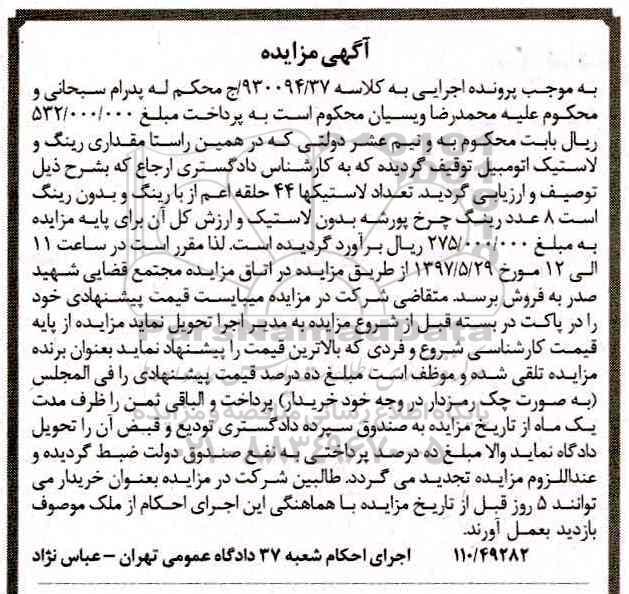 آگهی مزایده
به موجب پرونده اجرایی به کلاسه ۹۳۰۰۹۴/۳۷/ج محکم له پدرام سبحانی و
محکوم علیه محمدرضا ویسیان محکوم است به پرداخت مبلغ ۵۳۲/۰۰۰/۰۰۰
ریال بابت محکوم به و نیم عشر دولتی که در همین راستا مقداری رینگ و
لاستیک اتومبیل توقیف گردیده که به کارشناس دادگستری ارجاع که بشرح ذیل
توصیف و ارزیابی گردید. تعداد لاستیکها ۴۴ حلقه اعم از با رینگ و بدون رینگ
است ۸ عدد رینگ چرخ پورشه بدون لاستیک و ارزش کل آن برای پایه مزایده
به مبلغ ۲۷۵/۰۰۰/۰۰۰ ریال برآورد گردیده است. لذا مقرر است در ساعت ۱۱
الی ۱۲ مورخ ۱۳۹۷/۵/۲۹ از طریق مزایده در اتاق مزایده مجتمع قضایی شهید
صدر به فروش برسد. متقاضی شرکت در مزایده میبایست قیمت پیشنهادی خود
را در پاکت در بسته قبل از شروع مزایده به مدیر اجرا تحویل نماید مزایده از پایه
قیمت کارشناسی شروع و فردی که بالاترین قیمت را پیشنهاد نماید بعنوان برنده
مزایده تلقی شده و موظف است مبلغ ده درصد قیمت پیشنهادی را فی المجلس
(به صورت چک رمزدار در وجه خود خریدار) پرداخت و الباقی ثمن را ظرف مدت
یک ماه از تاریخ مزایده به صندوق سپرده دادگستری تودیع و قبض آن را تحویل
دادگاه نماید والا مبلغ ده درصد پرداختی به نفع صندوق دولت ضبط گردیده و
عنداللزوم مزایده تجدید می گردد. طالبین شرکت در مزایده بعنوان خریدار می
توانند ۵ روز قبل از تاریخ مزایده با هماهنگی این اجرای احکام از ملک موصوف
بازدید بعمل آورند.
۱۱۰/۴۹۲۸۲ اجرای احکام شعبه ۳۷ دادگاه عمومی تهران – عباس نژاد
ParsNamadData
پایگاه اطلاع رسانی مناقصه و مزایده
۰۲۱-۸۸۳۴۹۶۷۰-۵